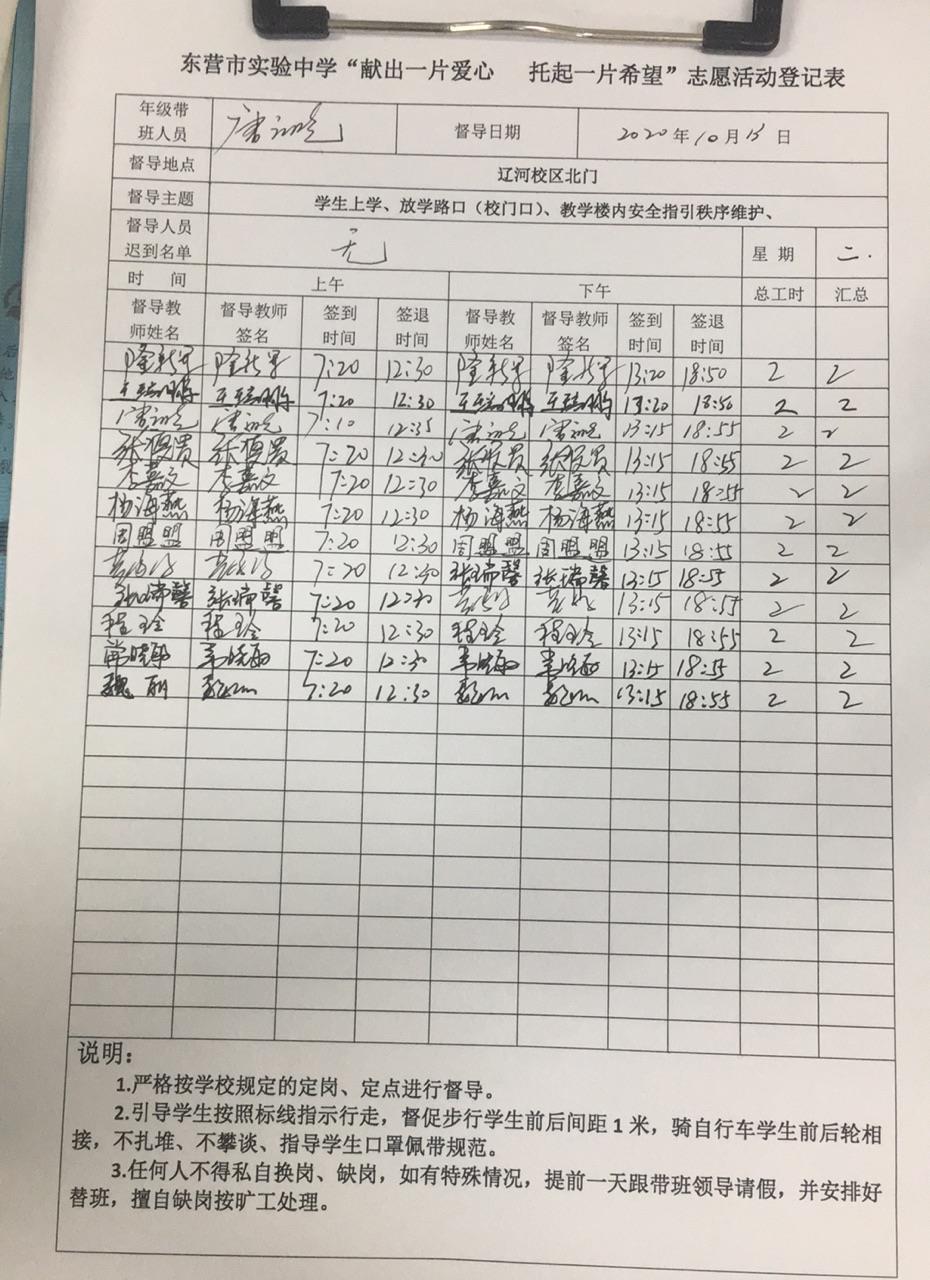 东营市实验中学“献出一片爱心 托起一片希望”志愿活动登记表
年级带班人员 督导日期 2020年10月13日
督导地点 辽河校区北门
督导主题 学生上学、放学路口（校门口）、教学楼内安全指引秩序维护、
督导人员迟到名单 无 星 期 二.
时 间 上午 下午 总工时 汇总
督导教师姓名 督导教师签名 签到时间 签退时间 督导教师姓名 督导教师签名 签到时间 签退时间
7:20 12:30 13:20 18:50 2 2
7:20 12:30 13:20 18:50 2 2
7:10 12:35 13:15 18:55 2 2
7:20 12:30 13:15 18:55 2 2
李嘉文 李嘉文 7:20 12:30 李嘉文 李嘉文 13:15 18:55 2 2
杨海燕 杨海燕 7:20 12:30 杨海燕 杨海燕 13:15 18:55 2 2
周盟盟 周盟盟 7:20 12:30 周盟盟 周盟盟 13:15 18:55 2 2
7:20 12:30 张瑞馨 张瑞馨 13:15 18:55 2 2
张瑞馨 张瑞馨 7:20 12:30 13:15 18:55 2 2
程玲 程玲 7:20 12:30 程玲 程玲 13:15 18:55 2 2
7:20 12:30 13:15 18:55 2 2
魏丽 7:20 12:30 13:15 18:55 2 2
说明：
1.严格按学校规定的定岗、定点进行督导。
2.引导学生按照标线指示行走，督促步行学生前后间距1米，骑自行车学生前后轮相
接，不扎堆、不攀谈、指导学生口罩佩带规范。
3.任何人不得私自换岗、缺岗，如有特殊情况，提前一天跟带班领导请假，并安排好
替班，擅自缺岗按旷工处理。